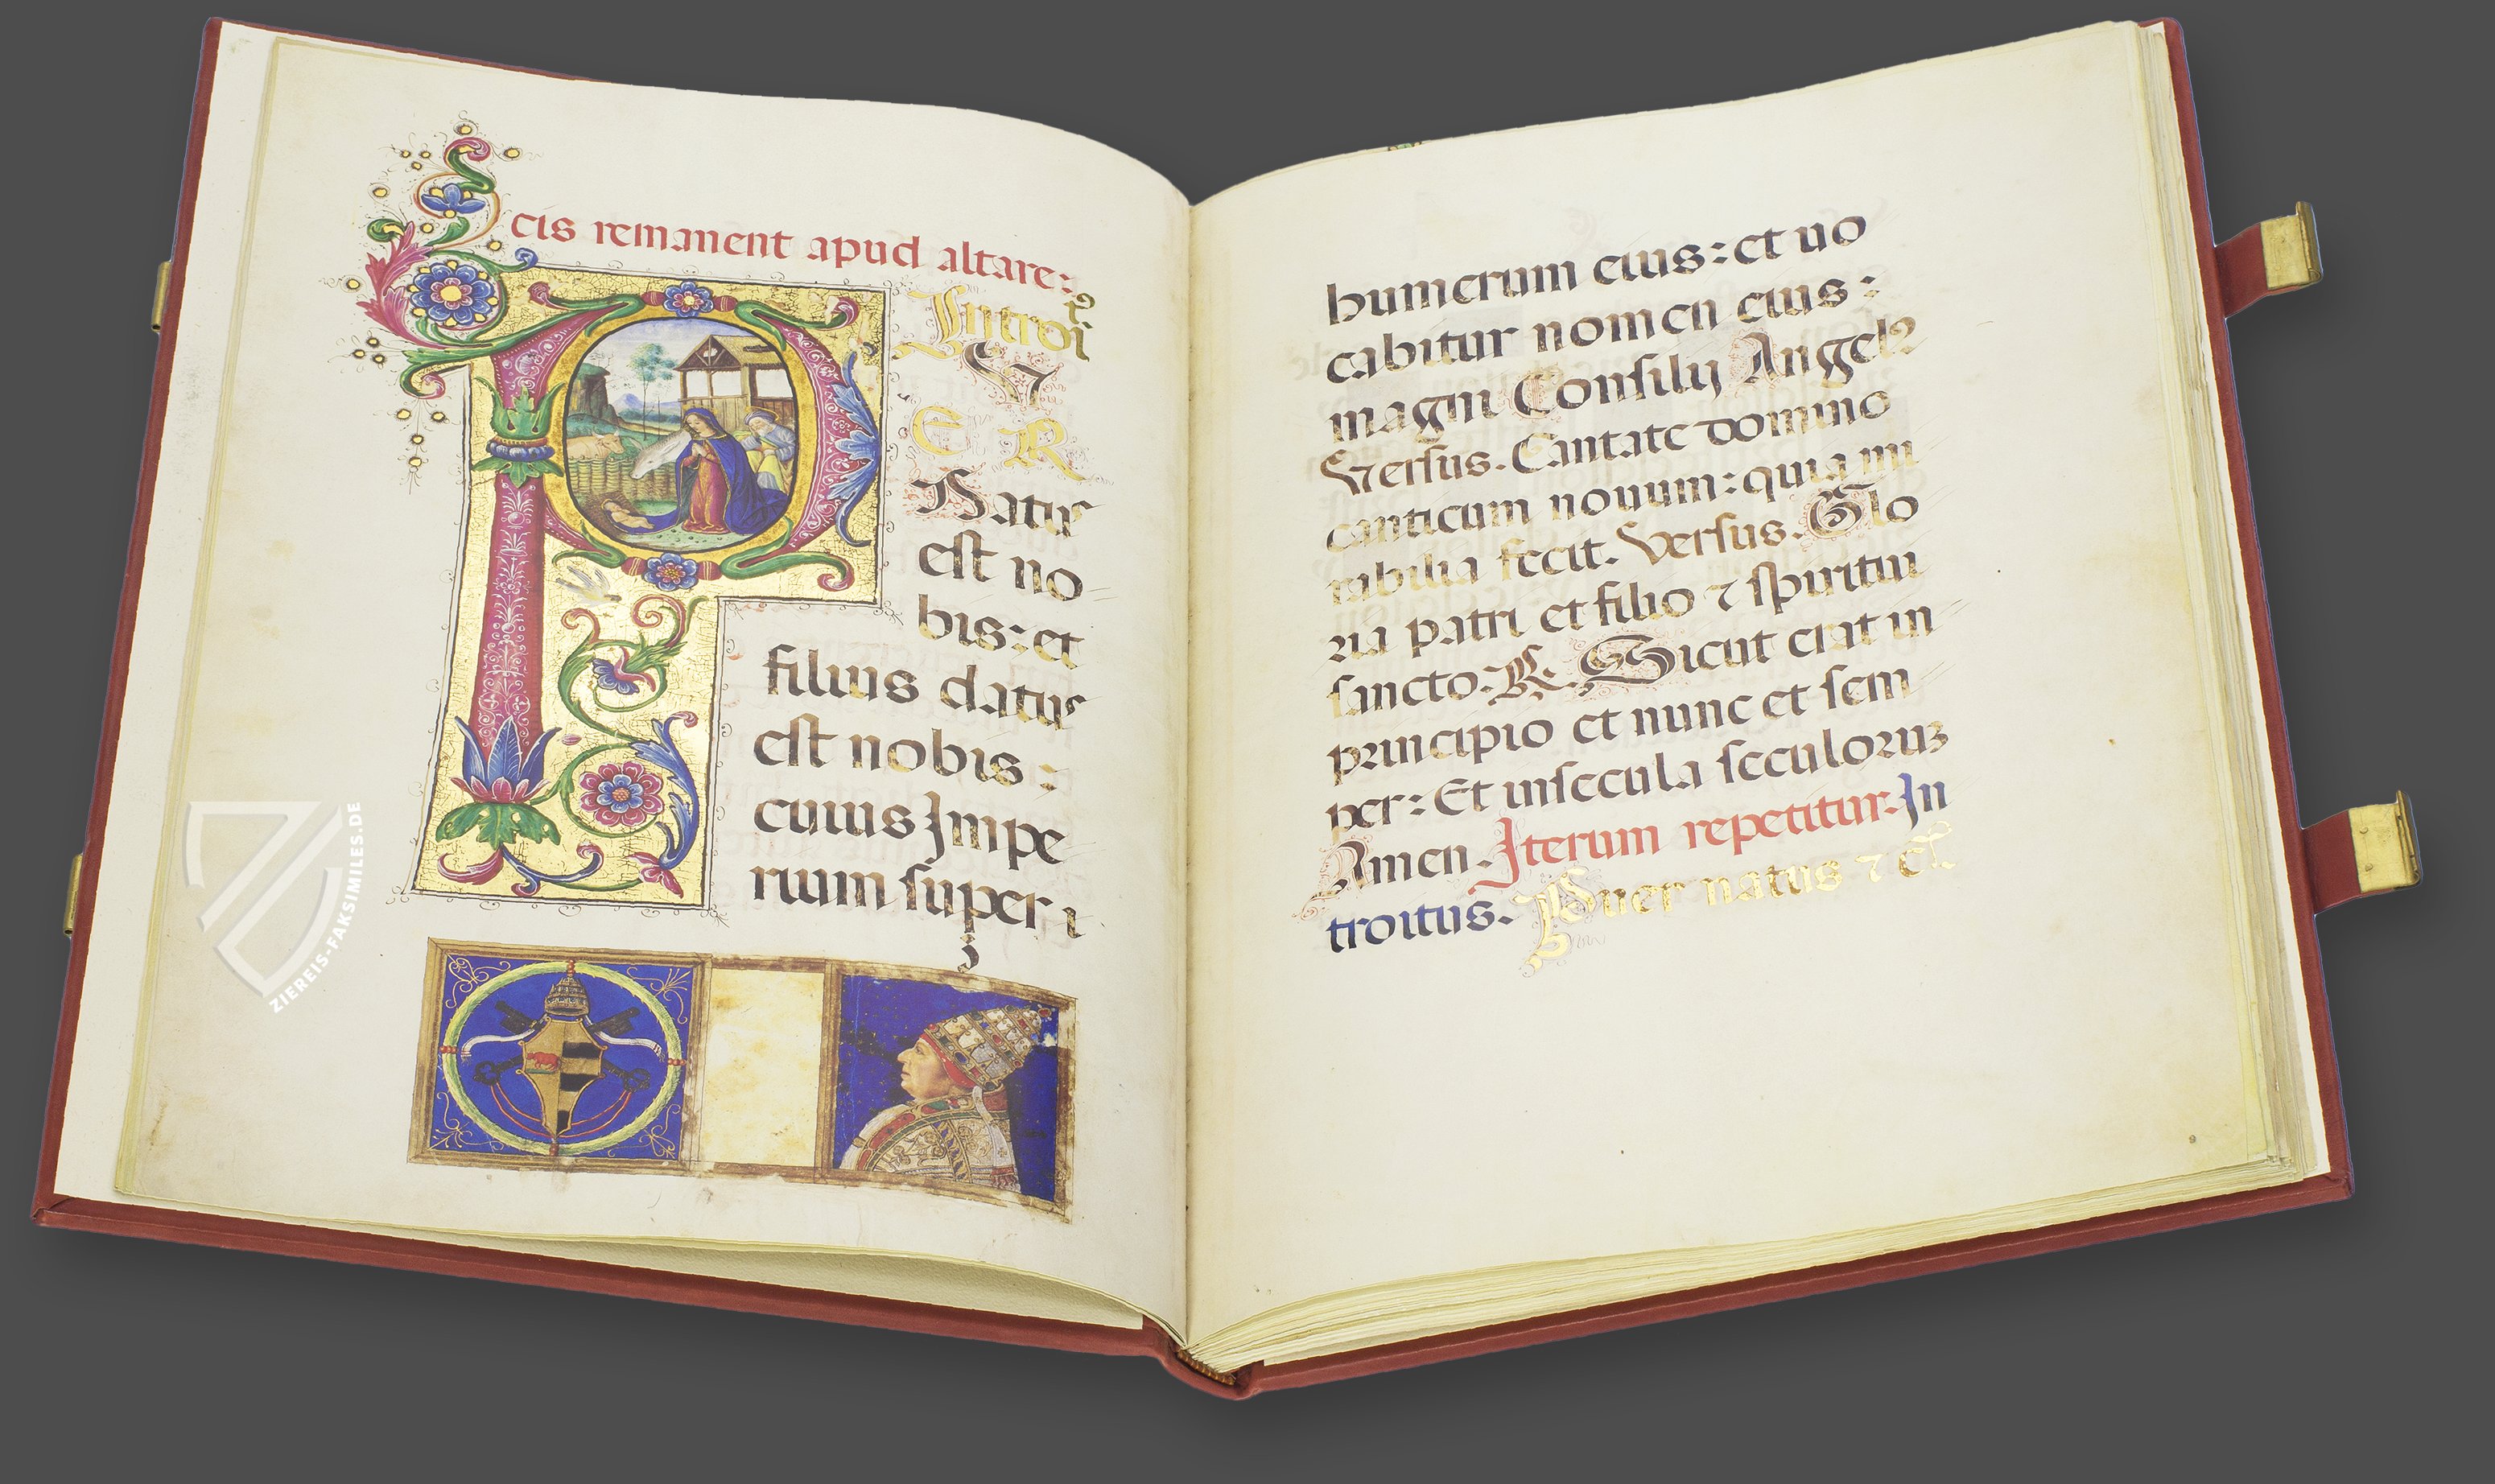 cis remanent apud altare:
Introi
tꝰ
P V
E R
Natus
est no
bis: et
filius datus
est nobis:
cuius Impe
rium super i
humerum eius: et uo
cabitur nomen eius:
magni Consilij Angelꝰ
Versus. Cantate domino
canticum nouum: quia mi
rabilia fecit. Versus. Glo
ria patri et filio ⁊ spiritui
sancto. R. Sicut erat in
principio et nunc et sem
per: Et insecula seculoruꝫ
Amen. Iterum repetitur. In
troitus. Puer natus ⁊ cͭ.
9
ZIEREIS-FAKSIMILES.DE